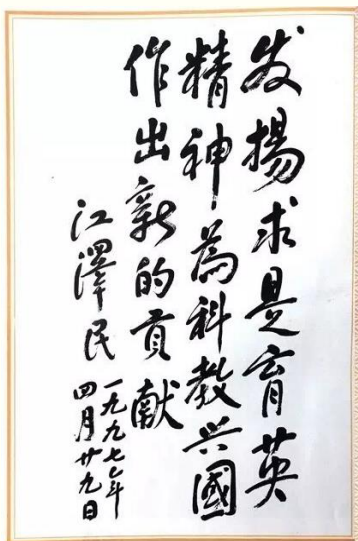 发揚求是育英
精神為科教兴國
作出新的貢献
江澤民
一九九七年
四月廿九日